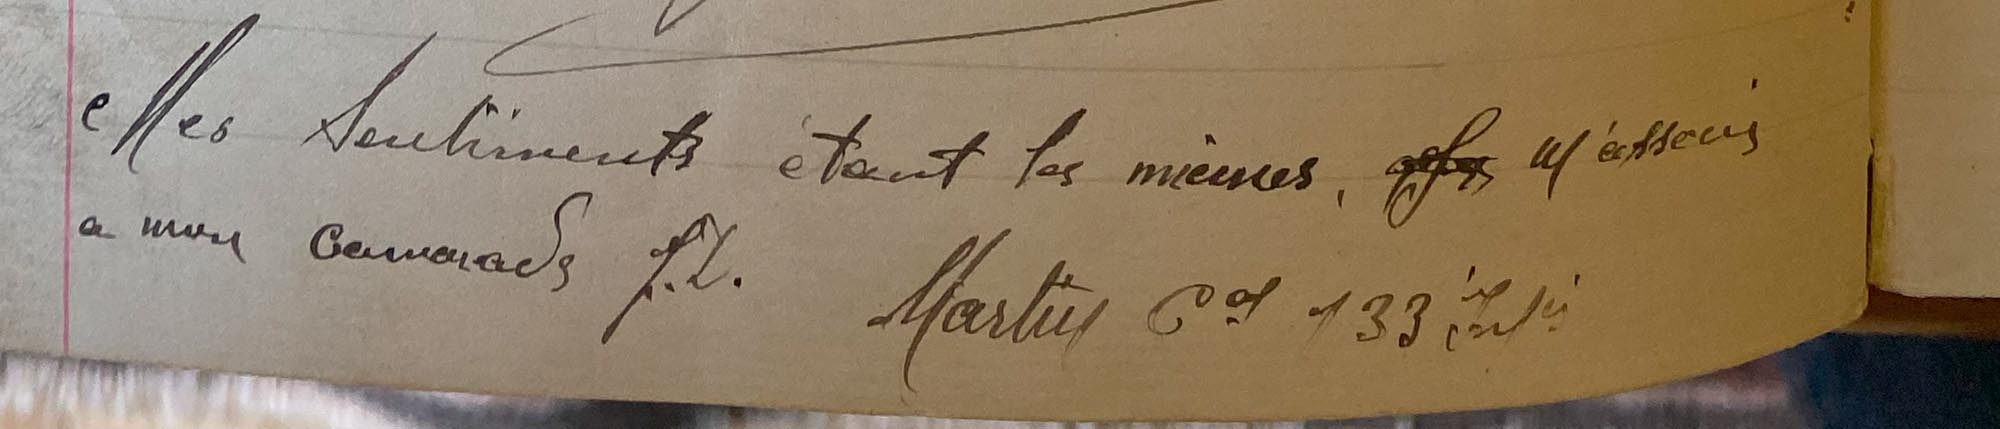 Mes Sentiments étant les mêmes, m'assois
a mon camarade J.L.
Martin Cal 133 inf